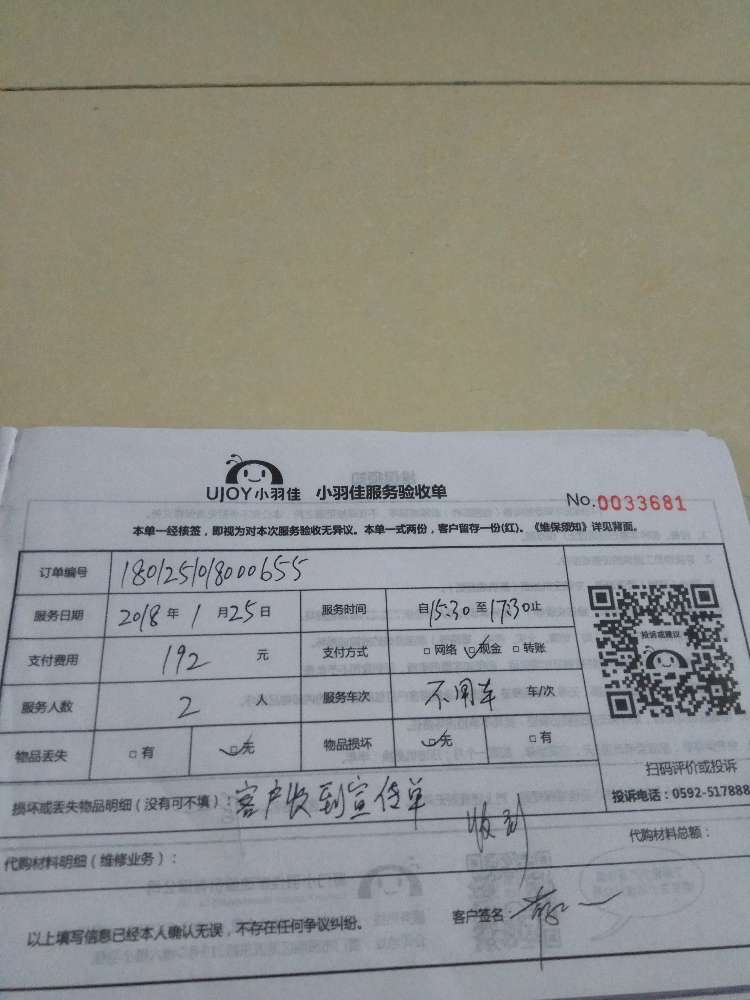 UJOY小羽佳 小羽佳服务验收单 No.0033681
本单一经核签，即视为对本次服务验收无异议。本单一式两份，客户留存一份(红)。《维保须知》详见背面。
订单编号 180125018000655
服务日期 2018年1月25日 服务时间 自15:30至17:30止
支付费用 192元 支付方式 □网络 ☑现金 □转账
服务人数 2人 服务车次 不用车 车/次
物品丢失 □有 ☑无 物品损坏 ☑无 □有
投诉或建议
扫码评价或投诉
投诉电话：0592-517888
损坏或丢失物品明细（没有可不填）：客户收到宣传单
收到
代购材料明细（维修业务）： 代购材料总额：
以上填写信息已经本人确认无误，不存在任何争议纠纷。 客户签名：